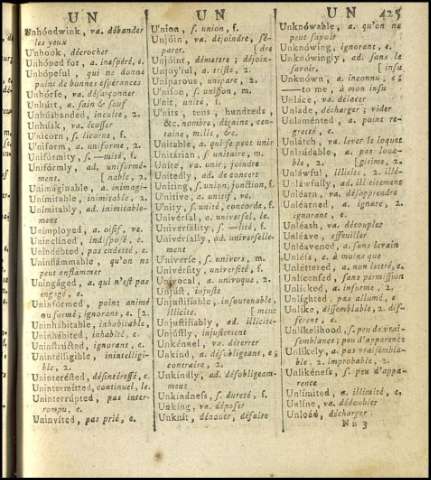 U N
U N
U N 425
Unhóodwink, va. débander
les yeux
Unhook, décrocher
Unhóped for, a. inespéré, e.
Unhópeful, qui ne donne
point de bonnes espérances
Unhórse, va. désarçonner
Unhúrt, a. sain & sauf
Unhúsbanded, inculte, 2.
Unhúsk, va. écosser
Unicorn, s. licorne, f.
Uniform, a. uniforme, 2.
Unifórmity, s. —mité, f.
Unifórmly, ad. uniformé-
ment, [nable, 2.
Unimáginable, a. inimagi-
Unimitable, inimitable, 2.
Unimitably, ad. inimitable-
ment
Unimployed, a. oisif, ve.
Uninclined, indisposé, e.
Unindébted, pas endetté, e.
Uninflámmable, qu'on ne
peut enflammer
Uningáged, a. qui n'est pas
engagé, e.
Uninformed, point animé
ou formé, ignorant, e. [2.
Uninhábitable, inhabitable,
Uninhábited, inhabité, e.
Uninstrúcted, ignorant, e.
Unintélligible, inintelligi-
ble, 2.
Uninterésted, désintéressé, e.
Unintermitted, continuel, le.
Uninterrúpted, pas inter-
rompu, e.
Uninvited, pas prié, e.
Union, s. union, f.
Unjóin, va. déjoindre, sé-
parer. [dre
Unjóint, démettre; déjoin-
Unjoyful, a. triste, 2.
Uniparous, unipare, 2.
Unison, s. unisson, m.
Unit, unité, f.
Units, tens, hundreds,
&c. nombre, dizaine, cen-
taine, mille, &c.
Unitable, a. qui se peut unir
Unitárian, s. unitaire, m.
Unite, va. unir; joindre
Unitedly, ad. de concert
Uniting, s. union, jonction, f.
Unitive, a. unitif, ve.
Unity, s. unité, concorde, f.
Univérsal, a. universel, le.
Universálity, s. —lité, f.
Univérsally, ad. universelle-
ment
Universe, s. univers, m.
Univérsity, université, f.
Univocal, a. univoque, 2.
Unjúst, injuste
Unjustifiable, insoutenable,
illicite, [ment
Unjustifiably, ad. illicite-
Unjústly, injustement
Unkénnel, va. déterrer
Unkind, a. désobligeant, e.
contraire, 2.
Unkindly, ad. désobligeam-
ment
Unkindness, s. dureté, f.
Unking, va. déposer
Unknít, dénouer, défaire
Unknówable, a. qu'on ne
peut savoir
Unknówing, ignorant, e.
Unknówingly, ad. sans le
savoir, [insu
Unknówn, a. inconnu, e;
—to me, à mon insu
Unláce, va. délacer
Unláde, décharger; vider
Unlaménted, a. point re-
gretté, e.
Unlátch, va. lever le loquet
Unláudable, a. pas loua-
ble, 2. [gitime, 2.
Unláwful, illicite, 2. illé-
Unláwfully, ad. illicitement
Unléarn, va. désapprendre
Unléarned, a. ignare, 2.
ignorant, e.
Unléash, va. découpler
Unléave, effeuiller
Unléavened, a. sans levain
Unléss, c. à moins que
Unléttered, a. non lettré, e.
Unlicensed, sans permission
Unlicked, a. informe, 2.
Unlighted, pas allumé, e
Unlike, dissemblable, 2. dif-
férent, e.
Unlikelihood, s. peu de vrai-
semblance; peu d'apparence
Unlikely, a. pas vraisembla-
ble, 2. improbable, 2.
Unlikeness, s. peu d'appa-
rence
Unlimited, a. illimité, e.
Unline, va. dédoubler
Unlóad, décharger
Nn 3